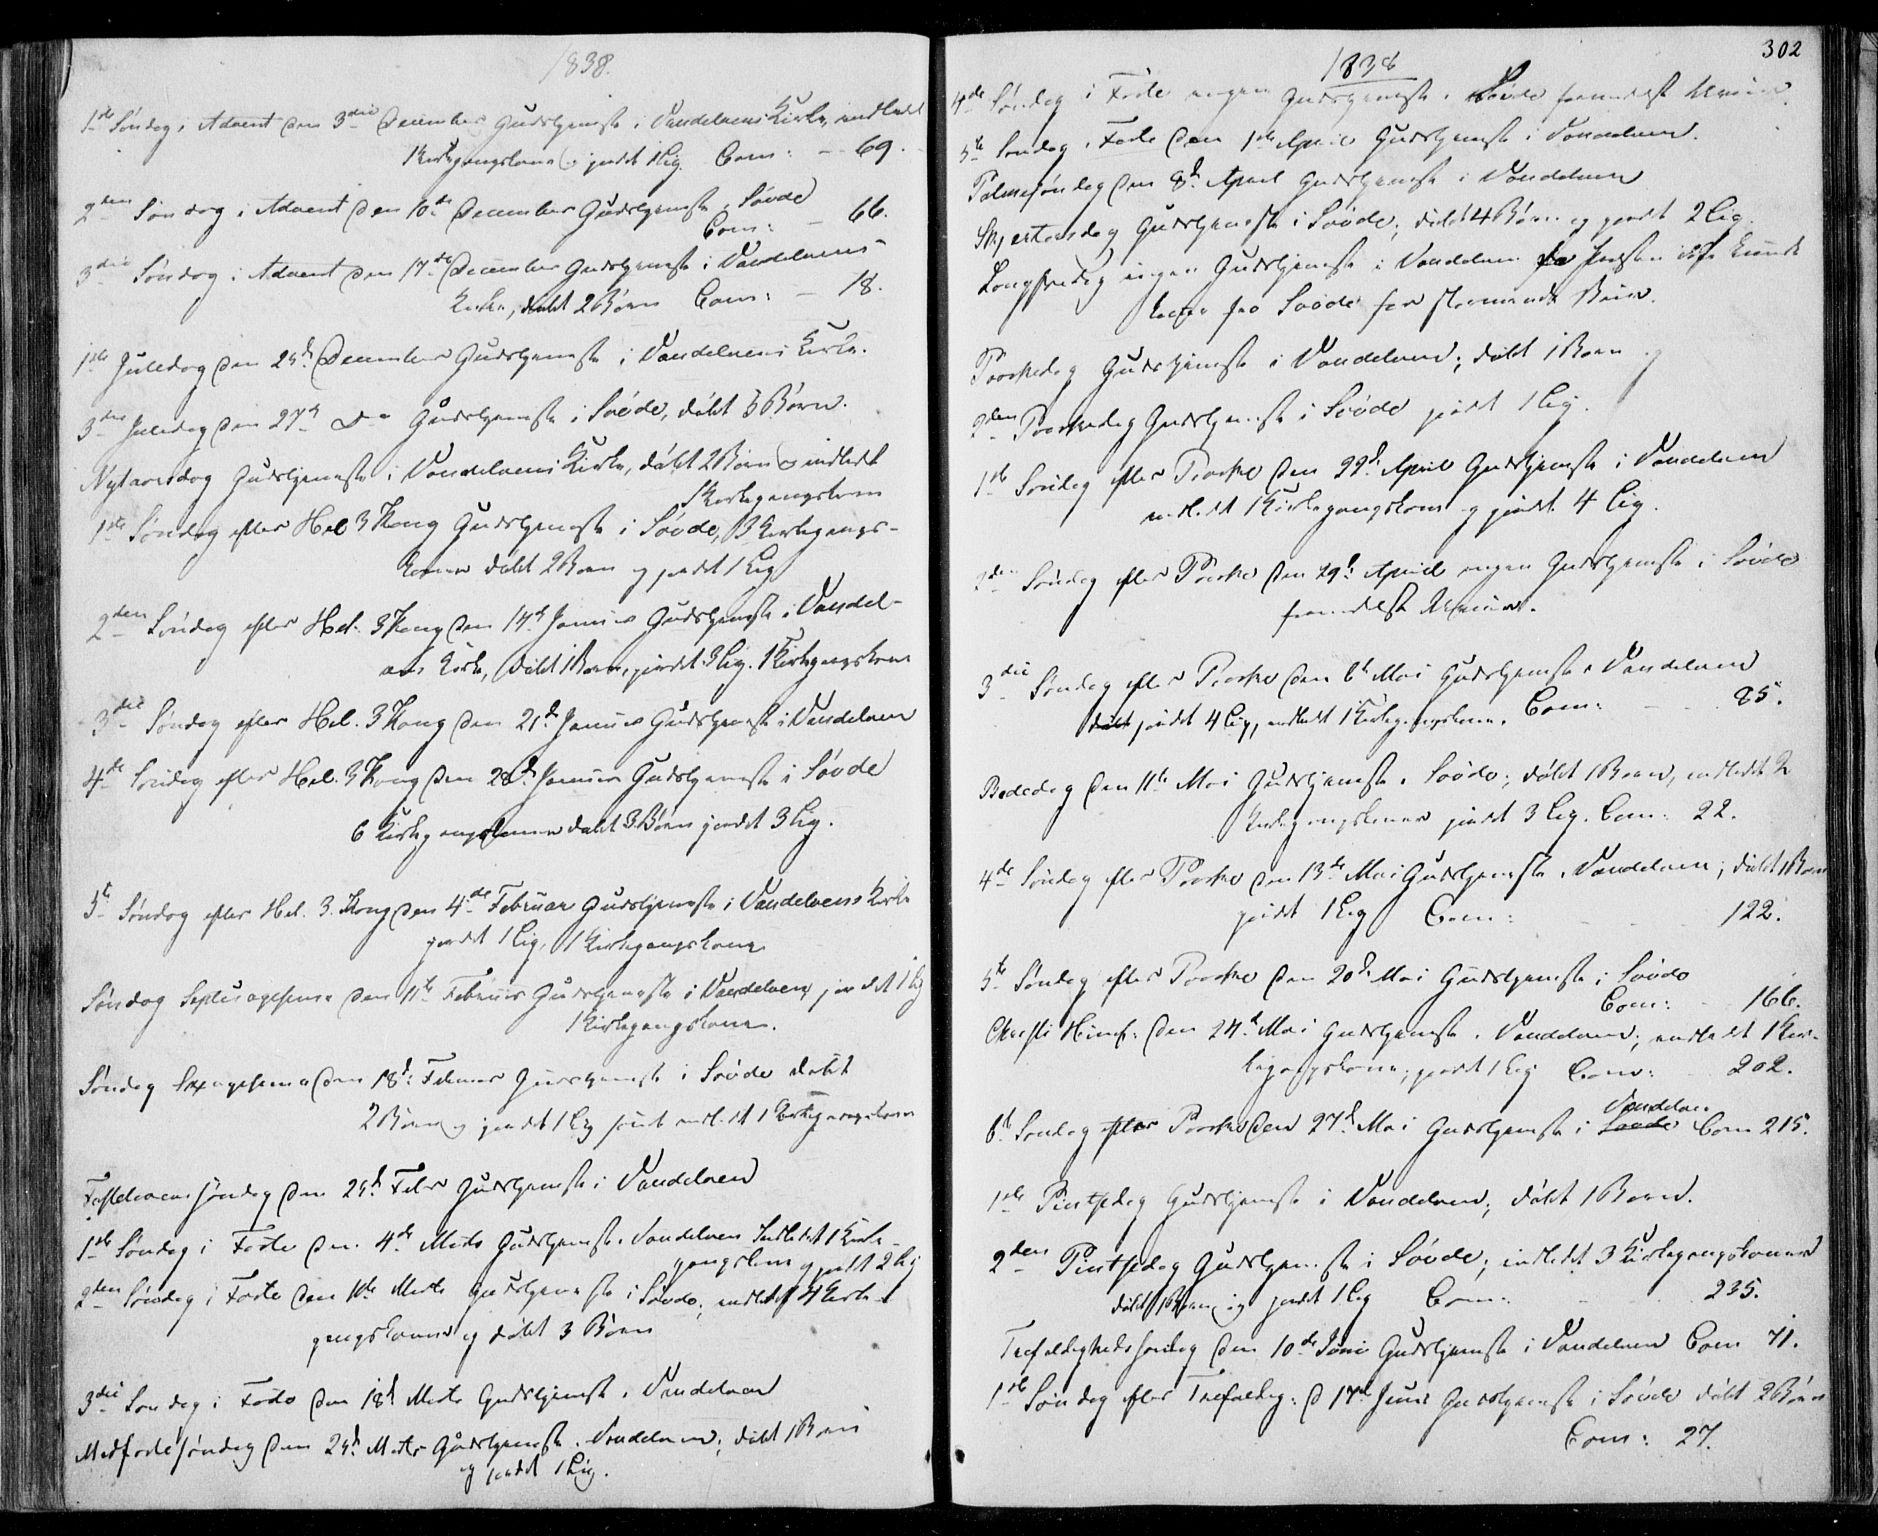 1838.
1ste Søndag i Advent den 3die December Gudstjeneste i Vandelvens Kirke, indledt
1 Kirkegangskone og jordet 1 Lig. Com: — 69.
2den Søndag i Advent den 10de December Gudstjeneste i Søvde
Com: — 66.
3die Søndag i Advent den 17de December Gudstjeneste i Vandelvens
Kirke, døbt 2 Børn Com: — 18.
1ste Juledag den 25d December Gudstjeneste i Vandelvens Kirke.
3die Juledag den 27d Do Gudstjeneste i Søvde, døbt 3 Børn.
Nytaarsdag Gudstjeneste i Vandelvens Kirke, døbt 2 Børn og indledt
1 Kirkegangskone
1ste Søndag efter Hel 3 Kong Gudstjeneste i Søvde, 3 Kirkegangs-
koner døbt 2 Børn og jordet 1 Lig
2den Søndag efter Hel. 3 Kong den 14d Januar Gudstjeneste i Vandel-
vens Kirke, døbt 1 Barn, jordet 3 Lig. 1 Kirkegangskone
3die Søndag efter Hel. 3 Kong den 21d Januar Gudstjeneste i Vandelven
4de Søndag efter Hel. 3 Kong den 28d Januar Gudstjeneste i Søvde
6 Kirkegangskoner døbt 3 Børn jordet 3 Lig.
5te Søndag efter Hel. 3. Kong den 4de Februar Gudstjeneste i Vandelvens Kirke
jordet 1 Lig, 1 Kirkegangskone
Søndag Septuagesima den 11te Februar Gudstjeneste i Vandelven, jordet 1 Lig
1 Kirkegangskone.
Søndag Sexagesima den 18d: Februar Gudstjeneste i Søvde døbt
2 Børn og jordet 1 Lig samt indledt 1 Kirkegangskone
Fastelavens søndag den 25d Febr Gudstjeneste i Vandelven
1ste Søndag i Faste den 4de Marts Gudstjeneste i Vandelven Indledt 1 Kirke-
gangskone og jordet 2 Lig
2den Søndag i Faste den 11te Marts Gudstjeneste i Søvde; indledt 4 Kirke-
gangskoner og døbt 3 Børn
3die Søndag i Faste den 18d Marts Gudstjeneste i Vandelven
Midfastesøndag den 25d Marts Gudstjeneste i Vandelven; døbt 1 Barn
og jordet 1 Lig.
302
1838
4de Søndag i Faste ingen Gudstjeneste i Søvde formedelst Uveir.
5te Søndag i Faste den 1ste April Gudstjeneste i Vandelven.
Palmesøndag den 8d April Gudstjeneste i Vandelven
Skjertorsdag Gudstjeneste i Søvde; døbt 4 Børn og jordet 2 Lig.
Langfredag ingen Gudstjeneste i Vandelven da Præsten ikke kunde
komme fra Søvde for stormende Veir.
Paaskedag Gudstjeneste i Vandelven; døbt 1 Barn
2den Paaskedag Gudstjeneste i Søvde jordet 1 Lig.
1ste Søndag efter Paaske den 22d April Gudstjeneste i Vandelven
indledt 1 Kirkegangskone og jordet 4 Lig.
2den Søndag efter Paaske den 29d: April ingen Gudstjeneste i Søvde
formedelst Uveir.
3die Søndag efter Paaske den 6te Mai Gudstjeneste i Vandelven
døbt jordet 4 Lig, indledt 1 Kirkegangskone. Com: — 85.
Bededag den 11te Mai Gudstjeneste i Søvde; døbt 1 Barn, indledt 2
Kirkegangskoner jordet 3 Lig. Com: 22.
4de Søndag efter Paaske den 13de Mai Gudstjeneste i Vandelven; døbt 1 Barn
jordet 1 Lig Com: 122.
5te Søndag efter Paaske den 20d Mai Gudstjeneste i Søvde
Com: 166.
Christi Himf: den 24d Mai Gudstjeneste i Vandelven; indledt 1 Kir-
kegangskone; jordet 1 Lig Com: 202.
Vandelven
6te Søndag efter Paaske den 27d Mai Gudstjeneste i Søvde Com 215.
1ste Pintsedag Gudstjeneste i Vandelven; døbt 1 Barn.
2den Pintsedag Gudstjeneste i Søvde; indledt 3 Kirkegangskoner
døbt 1 Barn og jordet 1 Lig Com: 235.
Trefoldighedssøndag den 10de Juni Gudstjeneste i Vandelven Com 71.
1ste Søndag efter Trefoldig: d 17d Juni Gudstjeneste i Søvde døbt 2 Børn
Com: 27.